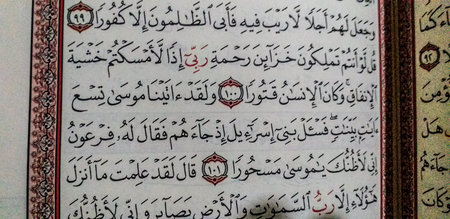 وَجَعَلَ لَهُمْ أَجَلًا لَّا رَيْبَ فِيهِ فَأَبَى ٱلظَّٰلِمُونَ إِلَّا كُفُورًا ٩٩
قُل لَّوْ أَنتُمْ تَمْلِكُونَ خَزَآئِنَ رَحْمَةِ رَبِّىٓ إِذًا لَّأَمْسَكْتُمْ خَشْيَةَ
ٱلْإِنفَاقِ ۚ وَكَانَ ٱلْإِنسَٰنُ قَتُورًا ١٠٠ وَلَقَدْ ءَاتَيْنَا مُوسَىٰ تِسْعَ
ءَايَٰتٍۭ بَيِّنَٰتٍ ۖ فَسْـَٔلْ بَنِىٓ إِسْرَٰٓءِيلَ إِذْ جَآءَهُمْ فَقَالَ لَهُۥ فِرْعَوْنُ
إِنِّى لَأَظُنُّكَ يَٰمُوسَىٰ مَسْحُورًا ١٠١ قَالَ لَقَدْ عَلِمْتَ مَآ أَنزَلَ
هَٰٓؤُلَآءِ إِلَّا رَبُّ ٱلسَّمَٰوَٰتِ وَٱلْأَرْضِ بَصَآئِرَ وَإِنِّى لَأَظُنُّكَ